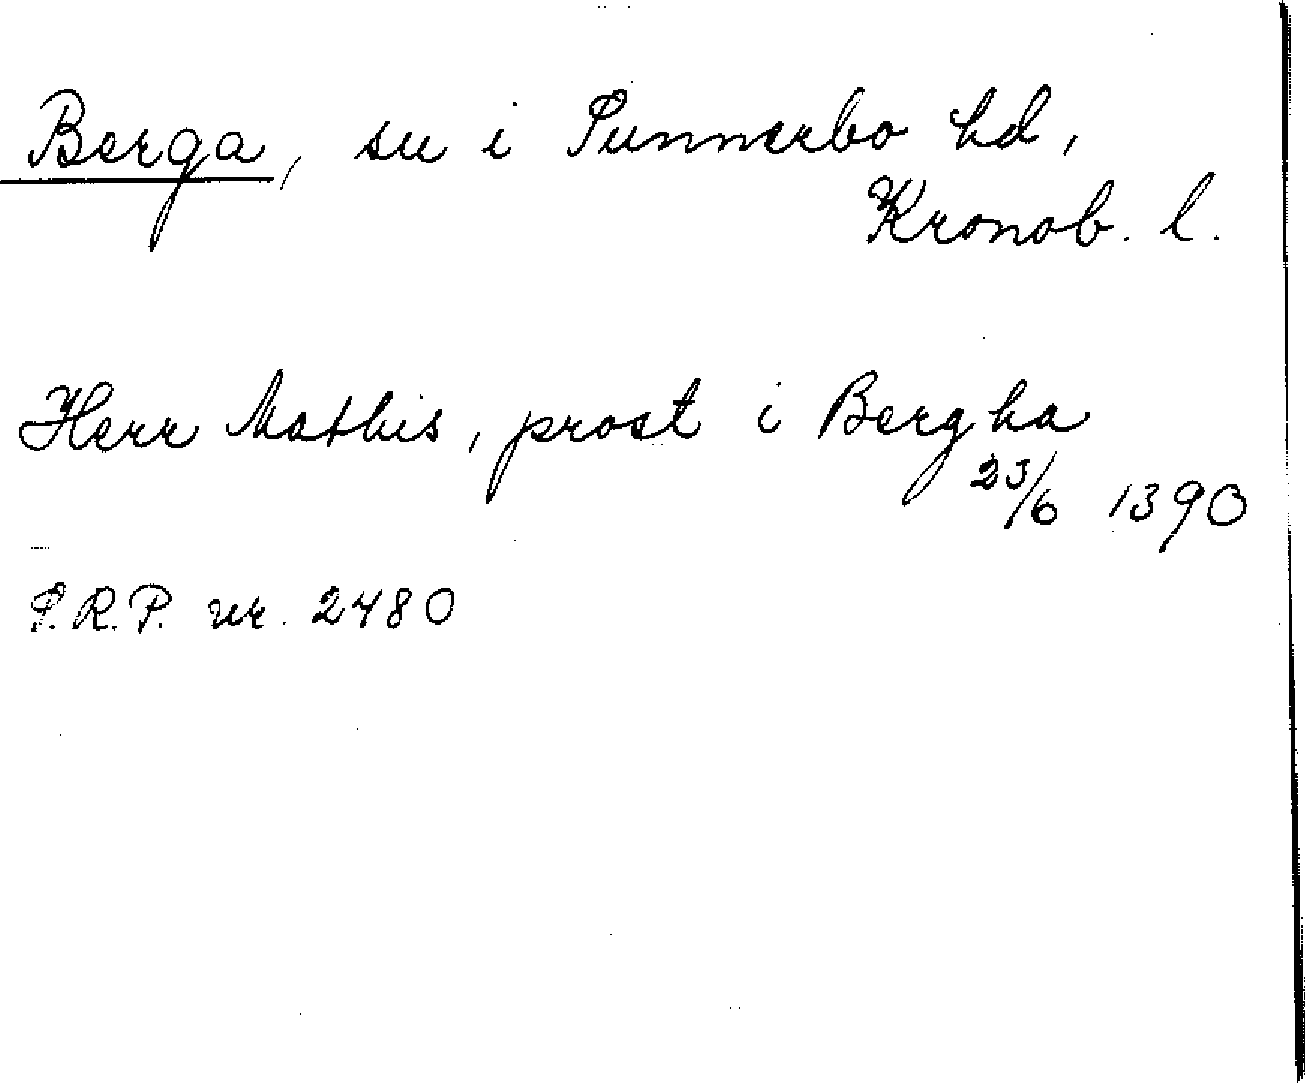 Berga, sn i Sunnerbo hd,
Kronob. l.
Herr Mathis, prost i Bergha
23/6 1390
S.R.P. nr. 2480